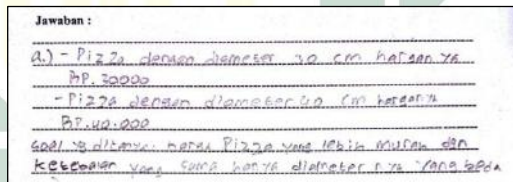 Jawaban :
a.) - Pizza dengan diameter 30 cm harganya
RP. 30000
- Pizza dengan diameter 40 cm harganya
RP. 40.000
Soal yg ditanya: harga Pizza yang lebih murah dan
ketebalan yang sama hanya diameter nya yang beda